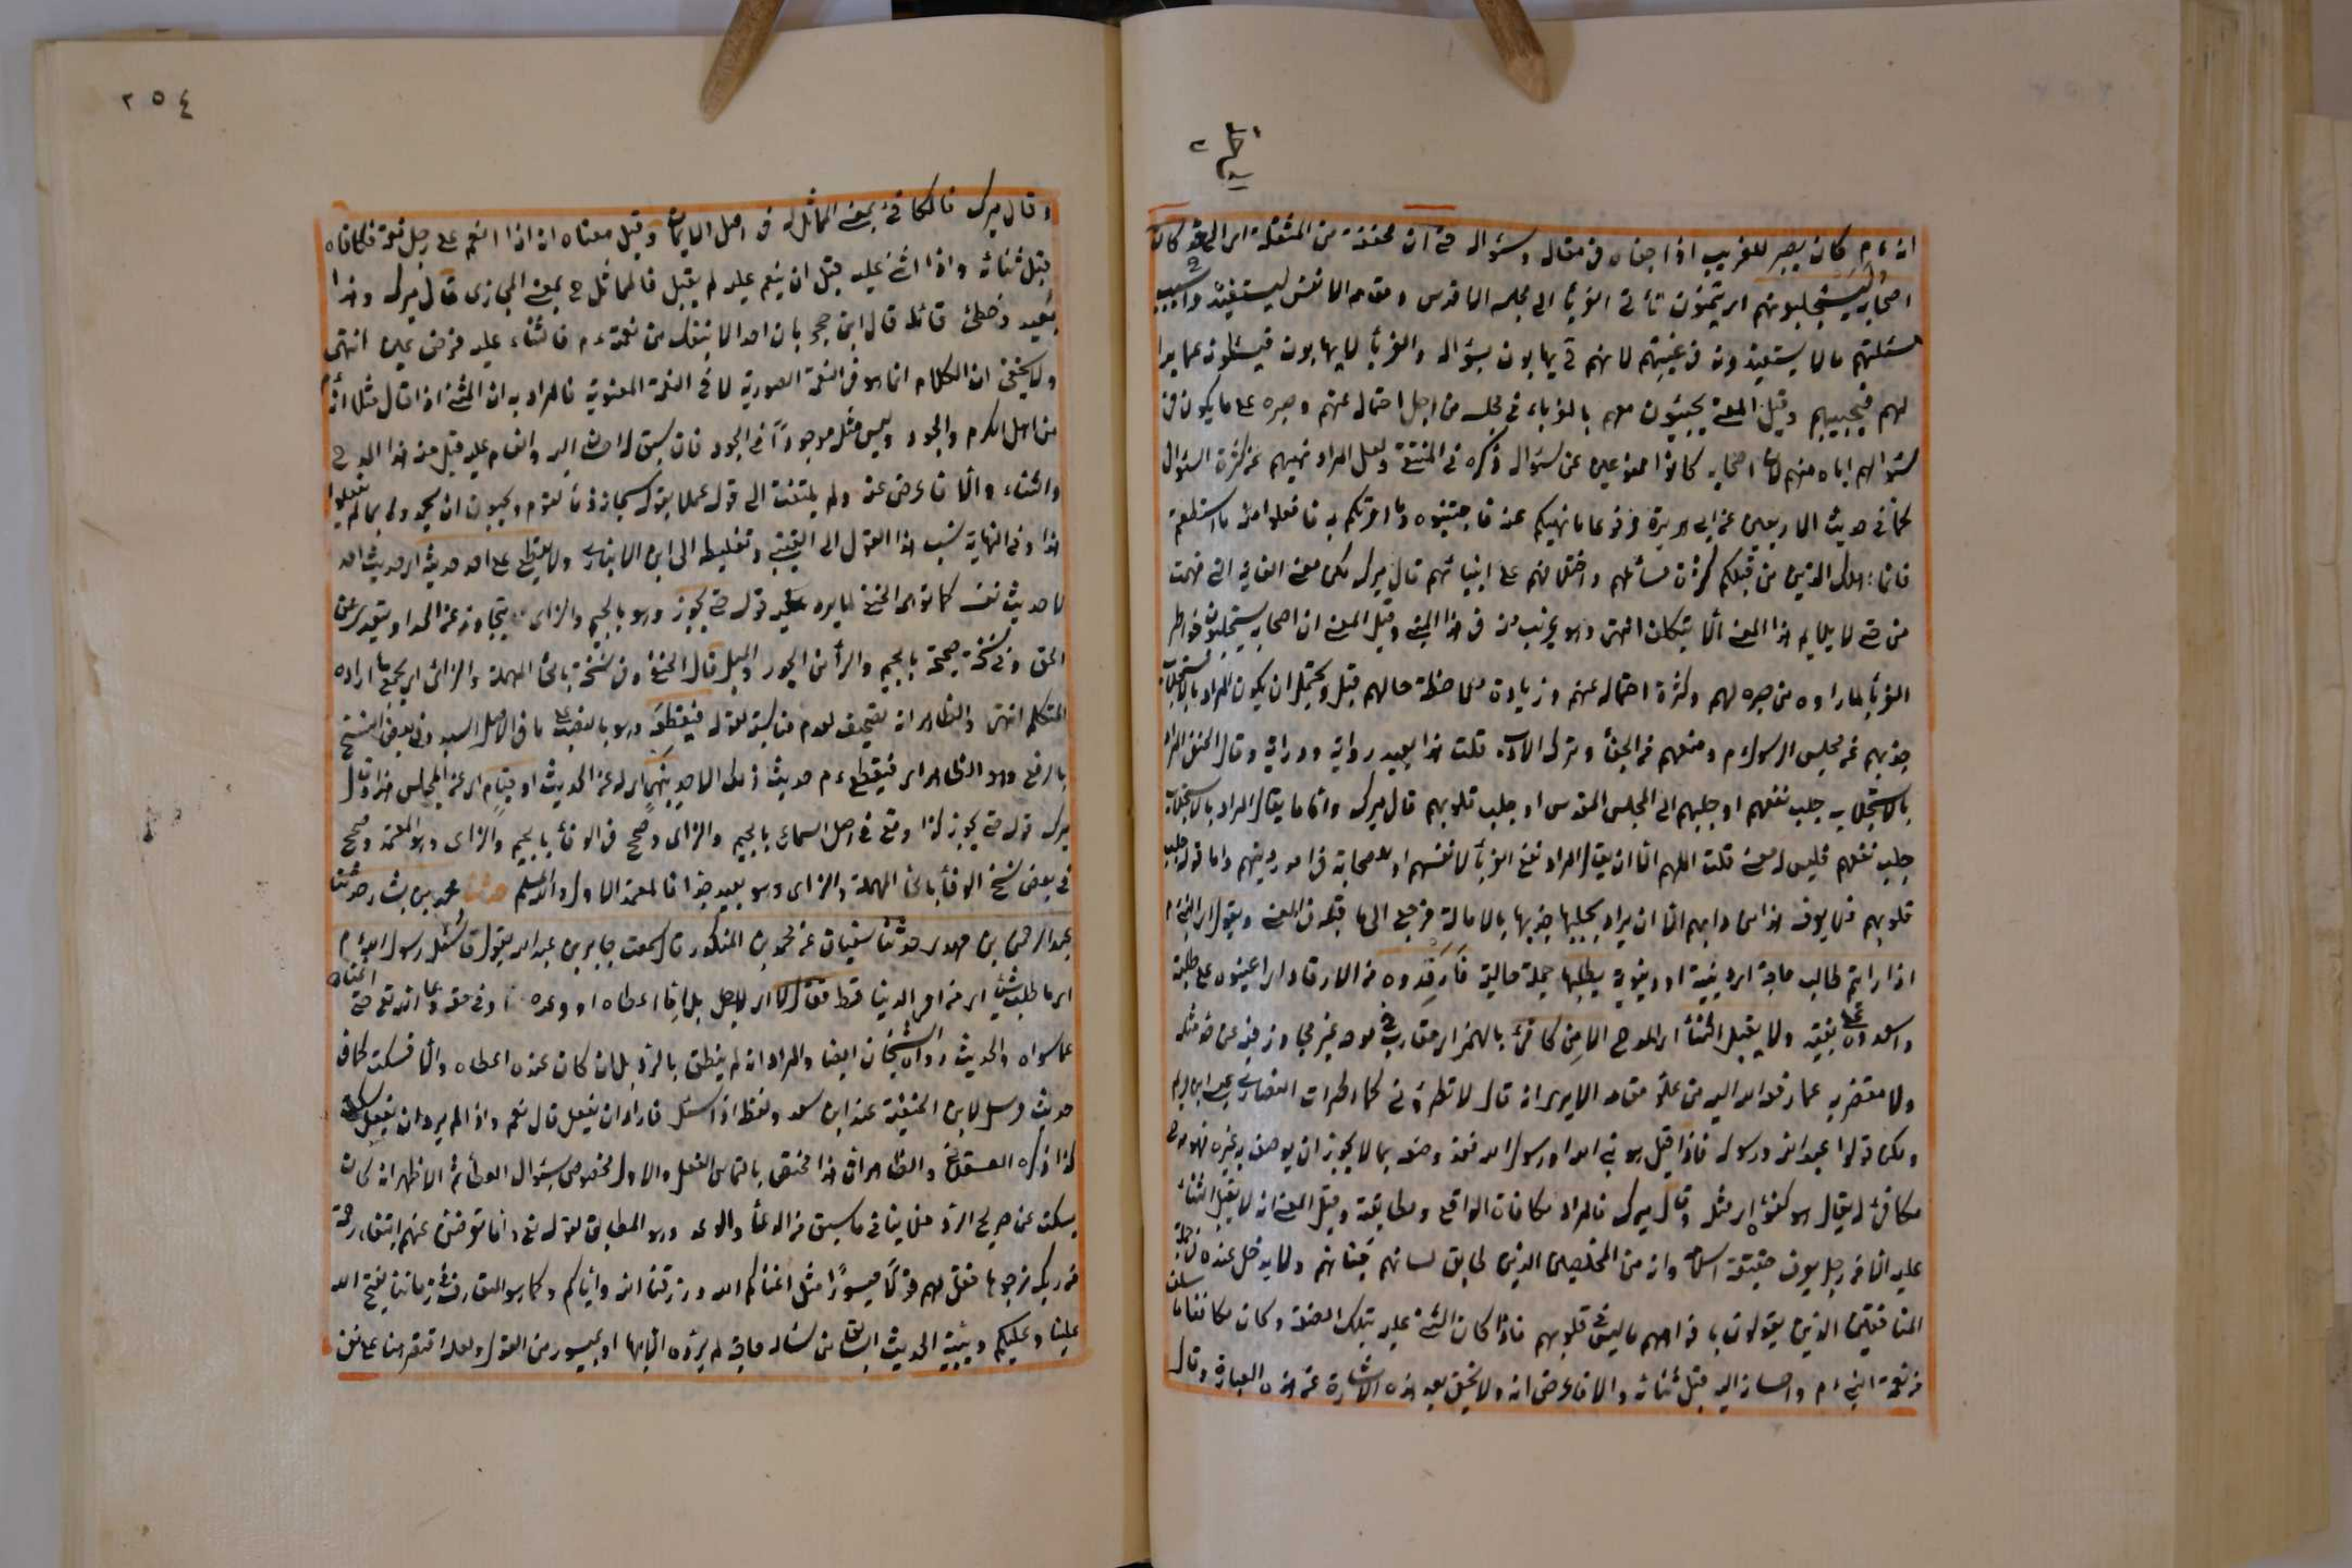 انه ءم كان يصبر للغريب اذا جفاه في مقاله وسؤاله حتى ان مخففة من المثقلة اي الى كان
اصحابه ليستجلبونهم اي يتمنون تأتي الغربأ الى مجلسه الاقدس ومقامه الانفس ليستفيدوا بسبب
مسئلتهم ما لا يستفيدونه في غيبتهم لانهم يهابون سؤاله والغربأ لا يهابون فيسئلون عما بدا
لهم فيجيبهم وقيل المعنى يجيئون معهم بالغرباء في مجلسه من اجل احتماله عنهم وصبره على ما يكون في
سؤالهم اياه منهم لان اصحابه كانوا ممنوعين عن سؤاله ذكره في المنتقى ولعل المراد نهيهم عن كثرة السؤال
كما في حديث الاربعين عن ابى هريرة مرفوعا ما نهيتكم عنه فاجتنبوه وما امرتكم به فافعلوا منه ما استطعتم
فانما اهلك الذين من قبلكم كثرة مسائلهم واختلافهم على انبيائهم قال ميرك لكن معنى الغاية التي فهمت
من حتى لا يلايم هذا المعنى الا بتكلف انتهى وهو غريب منه في هذا المبنى وقيل المعنى ان اصحابه يستجلبون خواطر
الغربأ لما راوه من صبره لهم وكثرة احتماله عنهم وزيادة ملاحظة حالهم قيل ويحتمل ان يكون المراد بالاستجلاب
جذبهم عن مجلس الرسول ءم ومنعهم عن الجفأ وترك الادب قلت هذا بعيد رواية ودراية وقال الحنفي المراد
بالاستجلاب جلب نفعهم او جلبهم الى المجلس المقدس او جلب قلوبهم قال ميرك واما ما يقال المراد بالاستجلاب
جلب نفعهم فليس له معنى قلت اللهم الا ان يقال المراد نفع الغربأ لانفسهم او للصحابة في امور دينهم واما قوله جلب
قلوبهم فلا يعرف هذا من دابهم الا ان يراد بجلبها جذبها بالامالة فرجع الى ما قبله في المعنى ويقول اي النبي ءم
اذا رايتم طالب حاجة اي دينية او دنيوية يطلبها جملة حالية فارفدوه من الارفاد اي اعينوه على طلبته
واسعدوه على بغيته ولا يقبل الثنأ اي المدح الا من مكافئ بالهمز اي مقارب في مدحه غير مجاوز فيه عن حد مثله
ولا مقصر به عما رفعه الله اليه من علو مقامه الا يرى انه قال لا تطروني كما اطرت النصارى عيسى ابن مريم
ولكن قولوا عبد الله ورسوله فاذا قيل هو نبي الله او رسول الله فقد وصفه بما لا يجوز ان يوصف به غيره فهو مدح
مكافئ له يقال هو كفؤه اي مثله وقال ميرك فالمراد مكافاة الواقع ومطابقة وقيل المعنى انه لا يقبل الثنأ
عليه الا من رجل يعرف حقيقة اسلامه وانه من المخلصين الذين طابق لسانهم جنانهم ولا يدخل عنده في جملة
المنافقين الذين يقولون بافواههم ما ليس في قلوبهم فاذا كان المثني عليه بتلك الصفة وكان مكافئا ما سلف
من نعمة النبي ءم واحسانه اليه قبل ثنائه والا فاعرض انه ولا يخفى بعد هذه الاشارة عن هذه العبارة وقال
٢٥٤
وقال ميرك فالمكافئ بمعنى المماثل له في اصل الايمان وقيل معناه انه اذا انعم على رجل نعمة فكافاه
قبل ثنائه واذا اثنى عليه قبل ان ينعم عليه لم يقبل فالمماثل بمعنى المجازى قال ميرك وهذا
بعيد وخطئ قائله قال ابن حجر بان احدا لا ينفك من نعمته ءم فالثناء عليه فرض عين انتهى
ولا يخفى ان الكلام انما هو في النعمة الصورية لا في النعمة المعنوية فالمراد به ان المثني اذا قال مثلا انه
من اهل الكرم والجود وليس مثله موجودا في الجود فان سبق له احسان اليه وانعام عليه قبل منه هذا المدح
والثناء والا فاعرض عنه ولم يلتفت الى قوله عملا بقوله سبحانه ذمّا لقوم ويحبون ان يحمدوا بما لم يفعلوا
هذا وفي النهاية نسب هذا القول الى القتيبي وتغليطه الى ابن الانباري ولا يقطع على احد حديثه اي حديث احد
لا حديث نفسه كما توهمه الحنفي لما يرد عليه قوله حتى يجوز وهو بالجيم والزاى اى يتجاوز عن الحد او يتعدى عن
الحق وفي نسخة صحيحة بالجيم والرأ من الجور والميل قال الحنفي وفي نسخة بالحأ المهملة والزاى اي يجمع ما اراده
المتكلم انتهى والظاهر انه تصحيف لعدم مناسبته لقوله فيقطعه وهو بالنصب على ما في الاصل السيد وفي بعض النسخ
بالرفع وهو الظاهر اي فيقطع ءم حديث ذلك الاحد بنهي اي له عن الحديث او قيام اي عن المجلس هذا وقال
ميرك قوله حتى يجوز كذا وقع في اصل السماع بالجيم والزاى وصحح في الوفأ بالجيم والزاى وهو المعتمد وصحح
في بعض نسخ الوفأ بالحأ المهملة والزاى وهو بعيد جدا فالمعتمد الاول والله اعلم حدثنا محمد بن بشار حدثنا
عبد الرحمن بن مهدى حدثنا سفيان عن محمد بن المنكدر قال سمعت جابر بن عبد الله يقول ما سئل رسول الله ءم
اى ما طلب شيئا اي من امر الدنيا قط فقال لا اي لا يحصل بل اما اعطاه او وعده او في حقه دعا الله تع حتى اغناه
عما سواه والحديث رواه الشيخان ايضا والمراد انه لم ينطق بالرد بل ان كان عنده اعطاه والا فسكت كما في
حديث مرسل لابن الحنفية عند ابن سعد ولفظه اذا سئل فاراد ان يفعل قال نعم واذا لم يرد ان يفعل سكت
كذا ذكره العسقلاني والظاهر ان هذا مختص بالتماس الفعل والاول مخصوص بسؤال العطأ ثم الاظهر انه كان
يسكت عن صريح الرد فلا ينافي ما سبق من الدعأ والوعد وهو المطابق لقوله تع واما تعرضن عنهم ابتغاء رحمة
من ربك ترجوها فقل لهم قولا ميسورا مثل اغناكم الله ورزقنا الله واياكم وكما هو المتعارف في زماننا يفتح الله
علينا وعليكم ويبينه الحديث السابق من سأله حاجة لم يرده الا بها او بميسور من القول ولعله اقتصر هنا على نفى